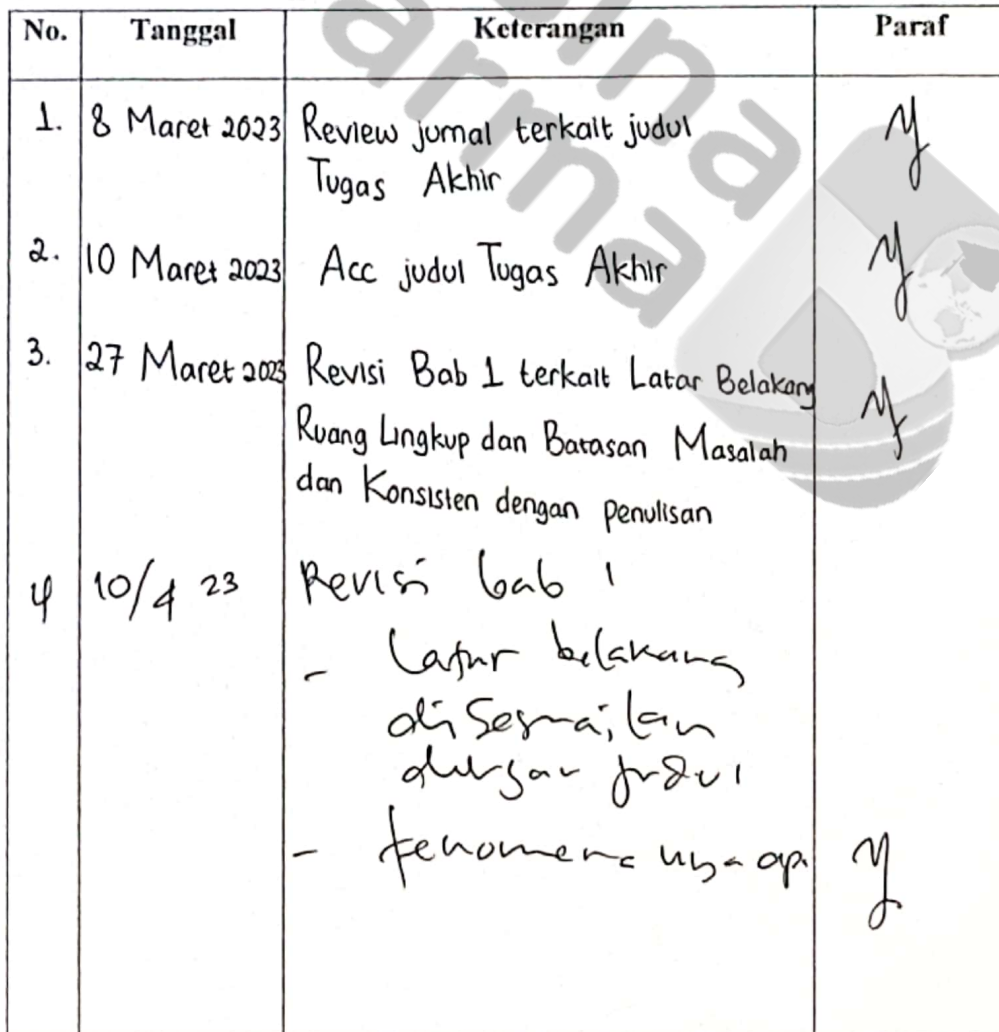 No. Tanggal Keterangan Paraf
1. 8 Maret 2023 Review jurnal terkait judul
Tugas Akhir
2. 10 Maret 2023 Acc judul Tugas Akhir
3. 27 Maret 2023 Revisi Bab 1 terkait Latar Belakang
Ruang Lingkup dan Batasan Masalah
dan Konsisten dengan penulisan
4 10/4 23 Revisi bab 1
- Latar belakang
disesuaikan
dengan judul
- fenomena nya ap